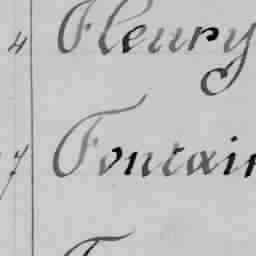 4 Fleury
7 Fontain